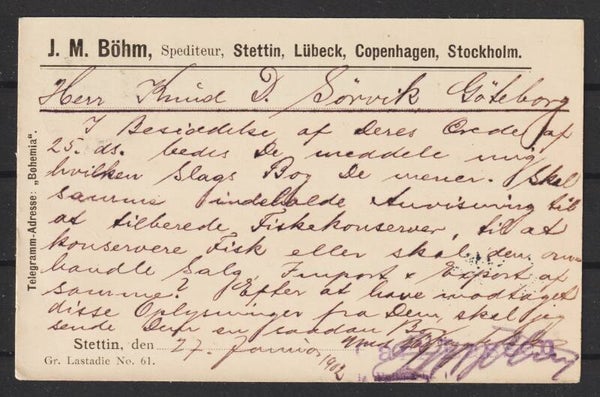 J. M. Böhm, Spediteur, Stettin, Lübeck, Copenhagen, Stockholm.
Herr Knud D. Sörvik Göteborg
I Besiddelse af Deres Ærede af
25. ds. bedes De meddele mig
hvilken Slags Bog De mener. Skal
samme indeholde Anvisning til
at tilberede Fiskekonserver, til at
konservere Fisk eller skal den om
handle Salg, Import & Export af
samme? Efter at have modtaget
disse Oplysninger fra Dem, skal jeg
sende Dem en saadan Bog.
Stettin, den 27. Januar 1902
Gr. Lastadie No. 61.
Telegramm-Adresse: „Bohemia“.